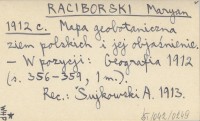 RACIBORSKI Maryan
1912 c.
Mapa geobotaniczna
ziem polskich i jej objaśnienie.
- W pozycji: Geografia 1912
(s. 356-359, 1 m.).
Rec.: Sujkowski A. 1913.
WHP